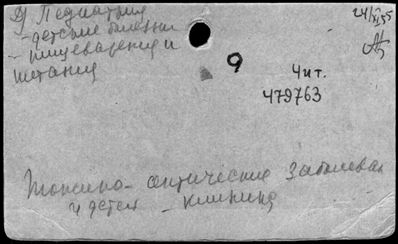 Д Педиатрия
24/XI 55
- детские болезни
- пищеварения и
питания
9
4 чт.
479763
Токсико-септические заболеван
у детей - клиника